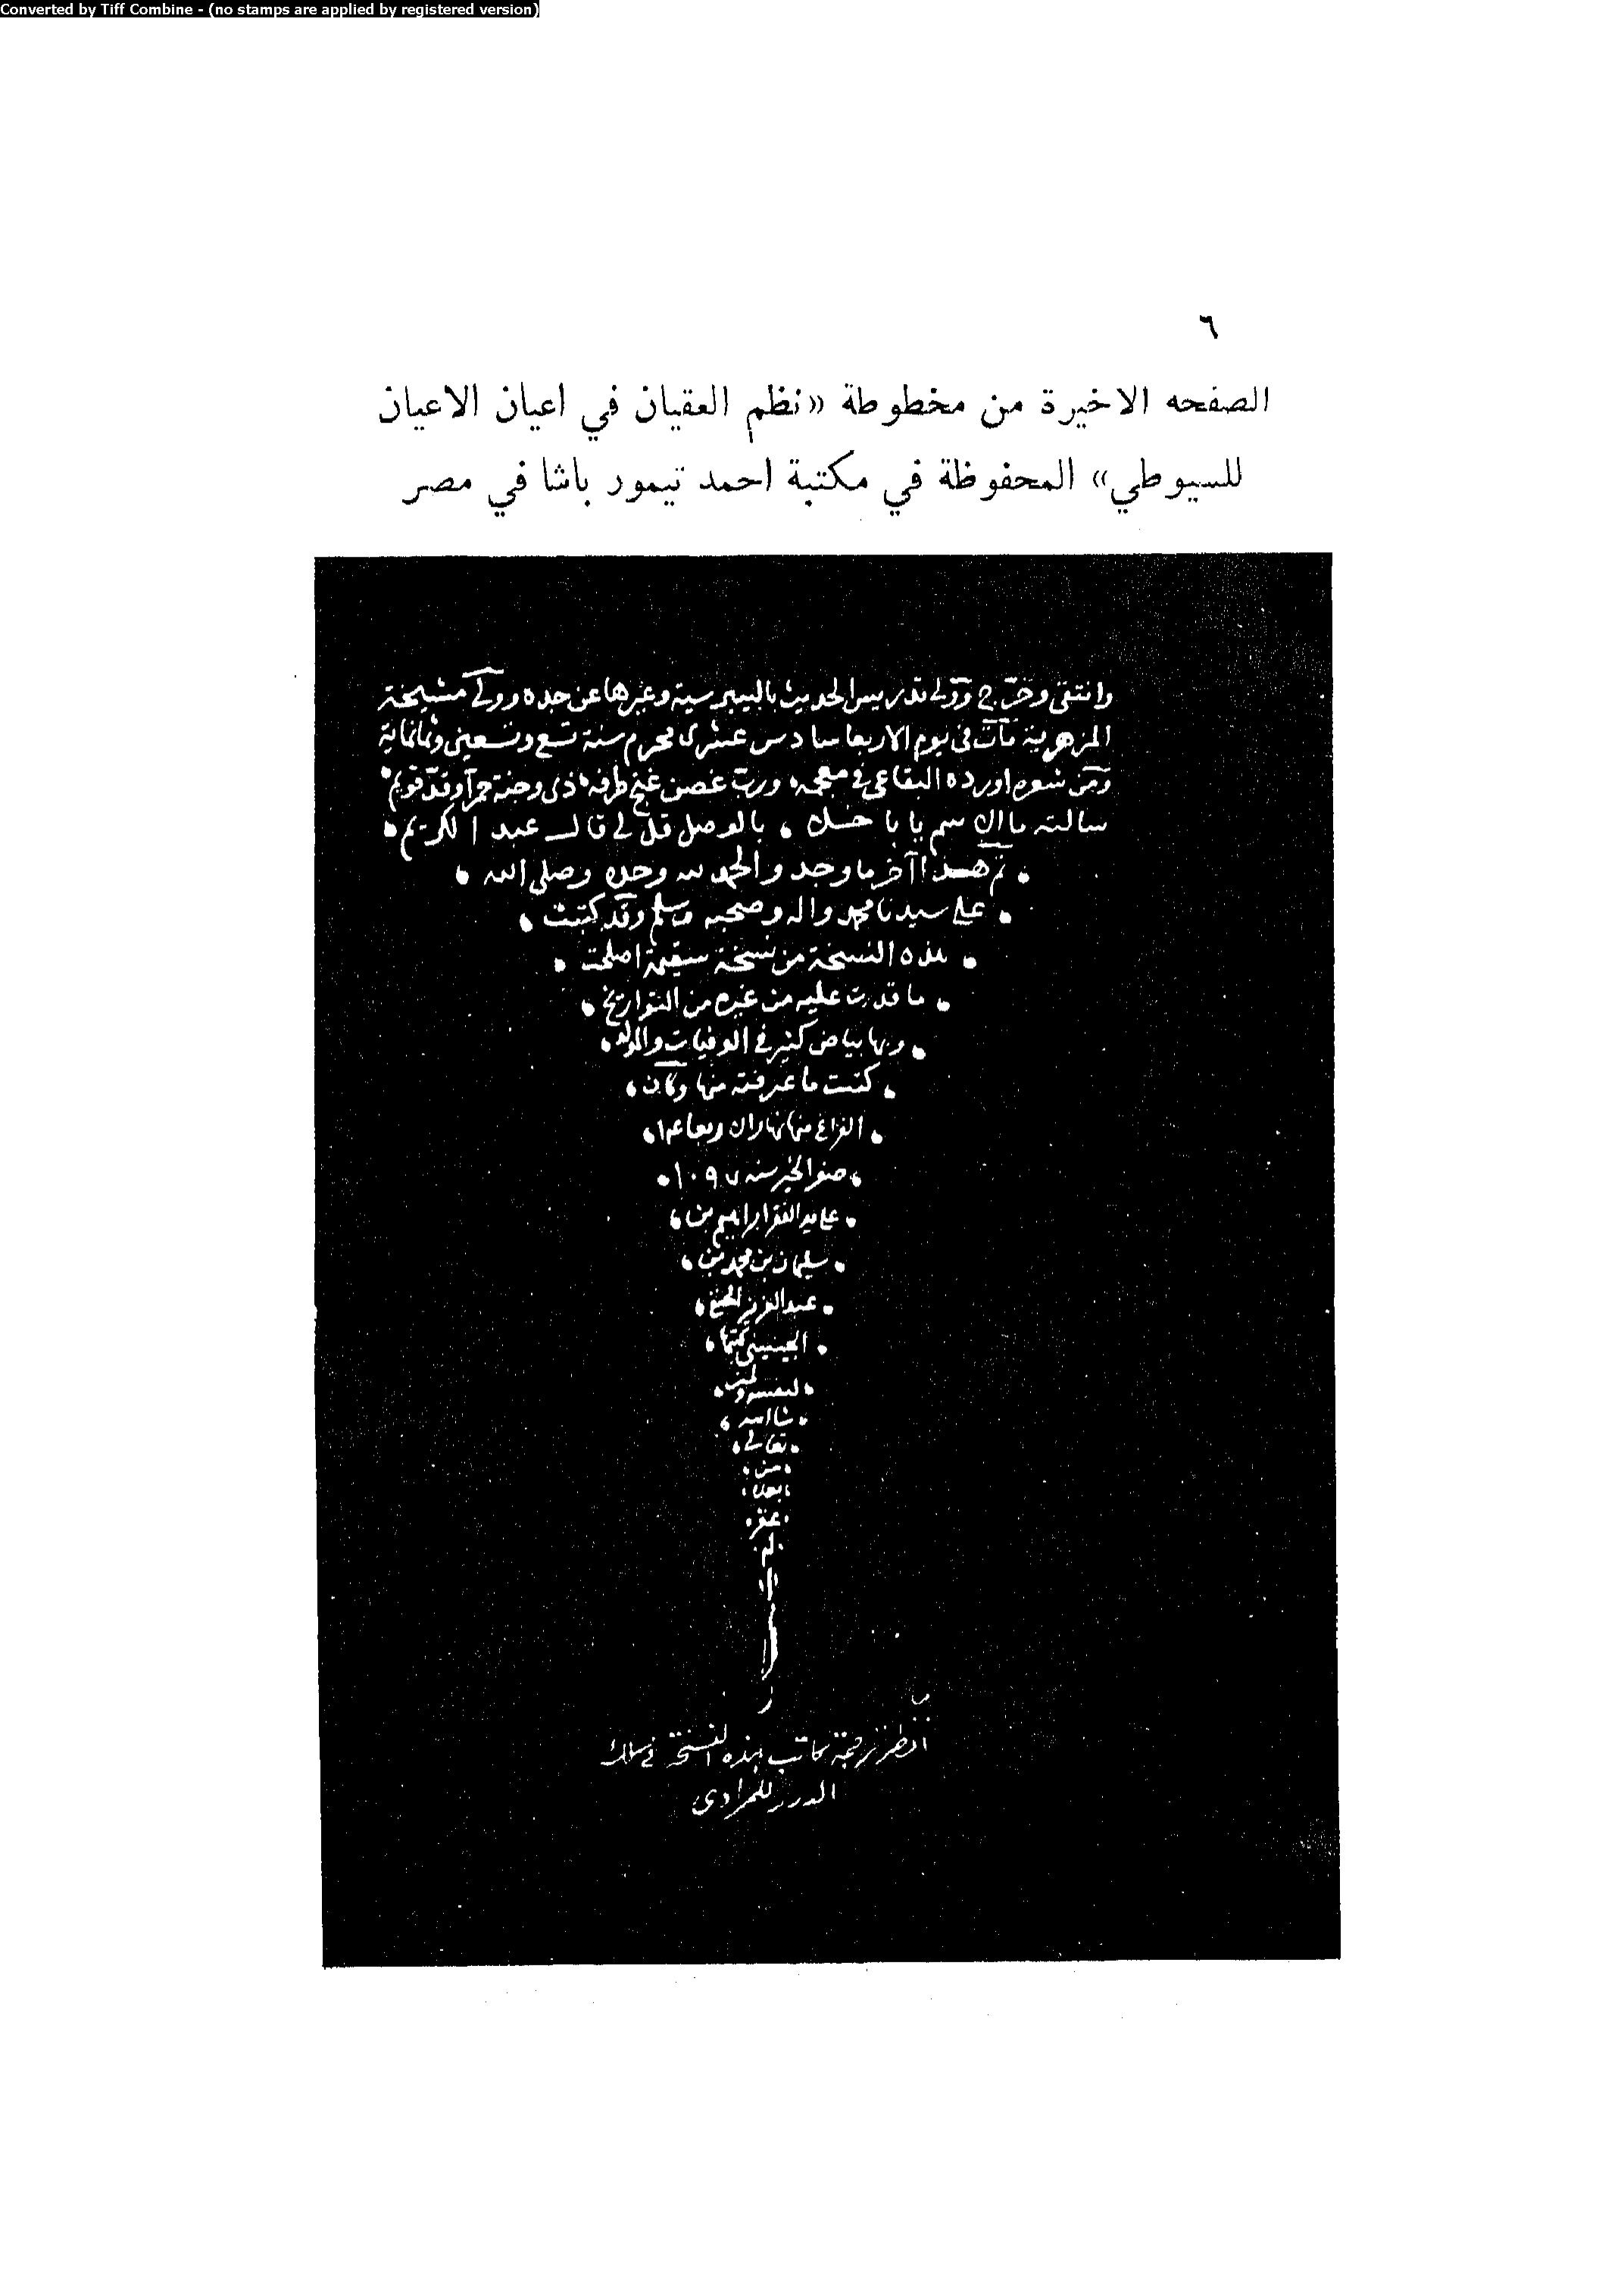 Converted by Tiff Combine - (no stamps are applied by registered version)
٦
الصفحه الاخيرة من مخطوطة «نظم العقيان في اعيان الاعيان
للسيوطي» المحفوظة في مكتبة احمد تيمور باشا في مصر
وانتقى وخرّج وولى تدريس الحديث بالبيبرسية وغيرها عن جده وولى مشيخة
المزهرية مات فى يوم الاربعا سادس عشرى محرم سنة تسع وتسعين وثمانماية
ومن شعره اورده البقاعى فى معجمه ورب غصن غنج طرفه ذى وجنة حمرآ وقدّ قويم
سالته ما ال سم يا با بالوصل قل لى قال عبد الكريم
تم هذا آخر ما وجد والحمد لله وحده وصلى الله
على سيدنا محمد واله وصحبه وسلم وقد كتبت
هذه النسخة من نسخة سقيمة اصلحت
ما قدرت عليه من غيره من التواريخ
وبها بياض كثير فى الوفيات والموالد
كتبت ما عرفته منها وكان
الفراغ منها نهار
صفر الخير سنه ١٠٩٧
على يد الفقير ابراهيم بن
سليمان بن محمد بن
عبد العزيز الحنفى
الجينينى كتبها
لنفسه ولمن
شا الله
تعالى
من
بعده
غفر
انظر ترجمة كاتب هذه النسخة فى سلك
الدرر للمرادى